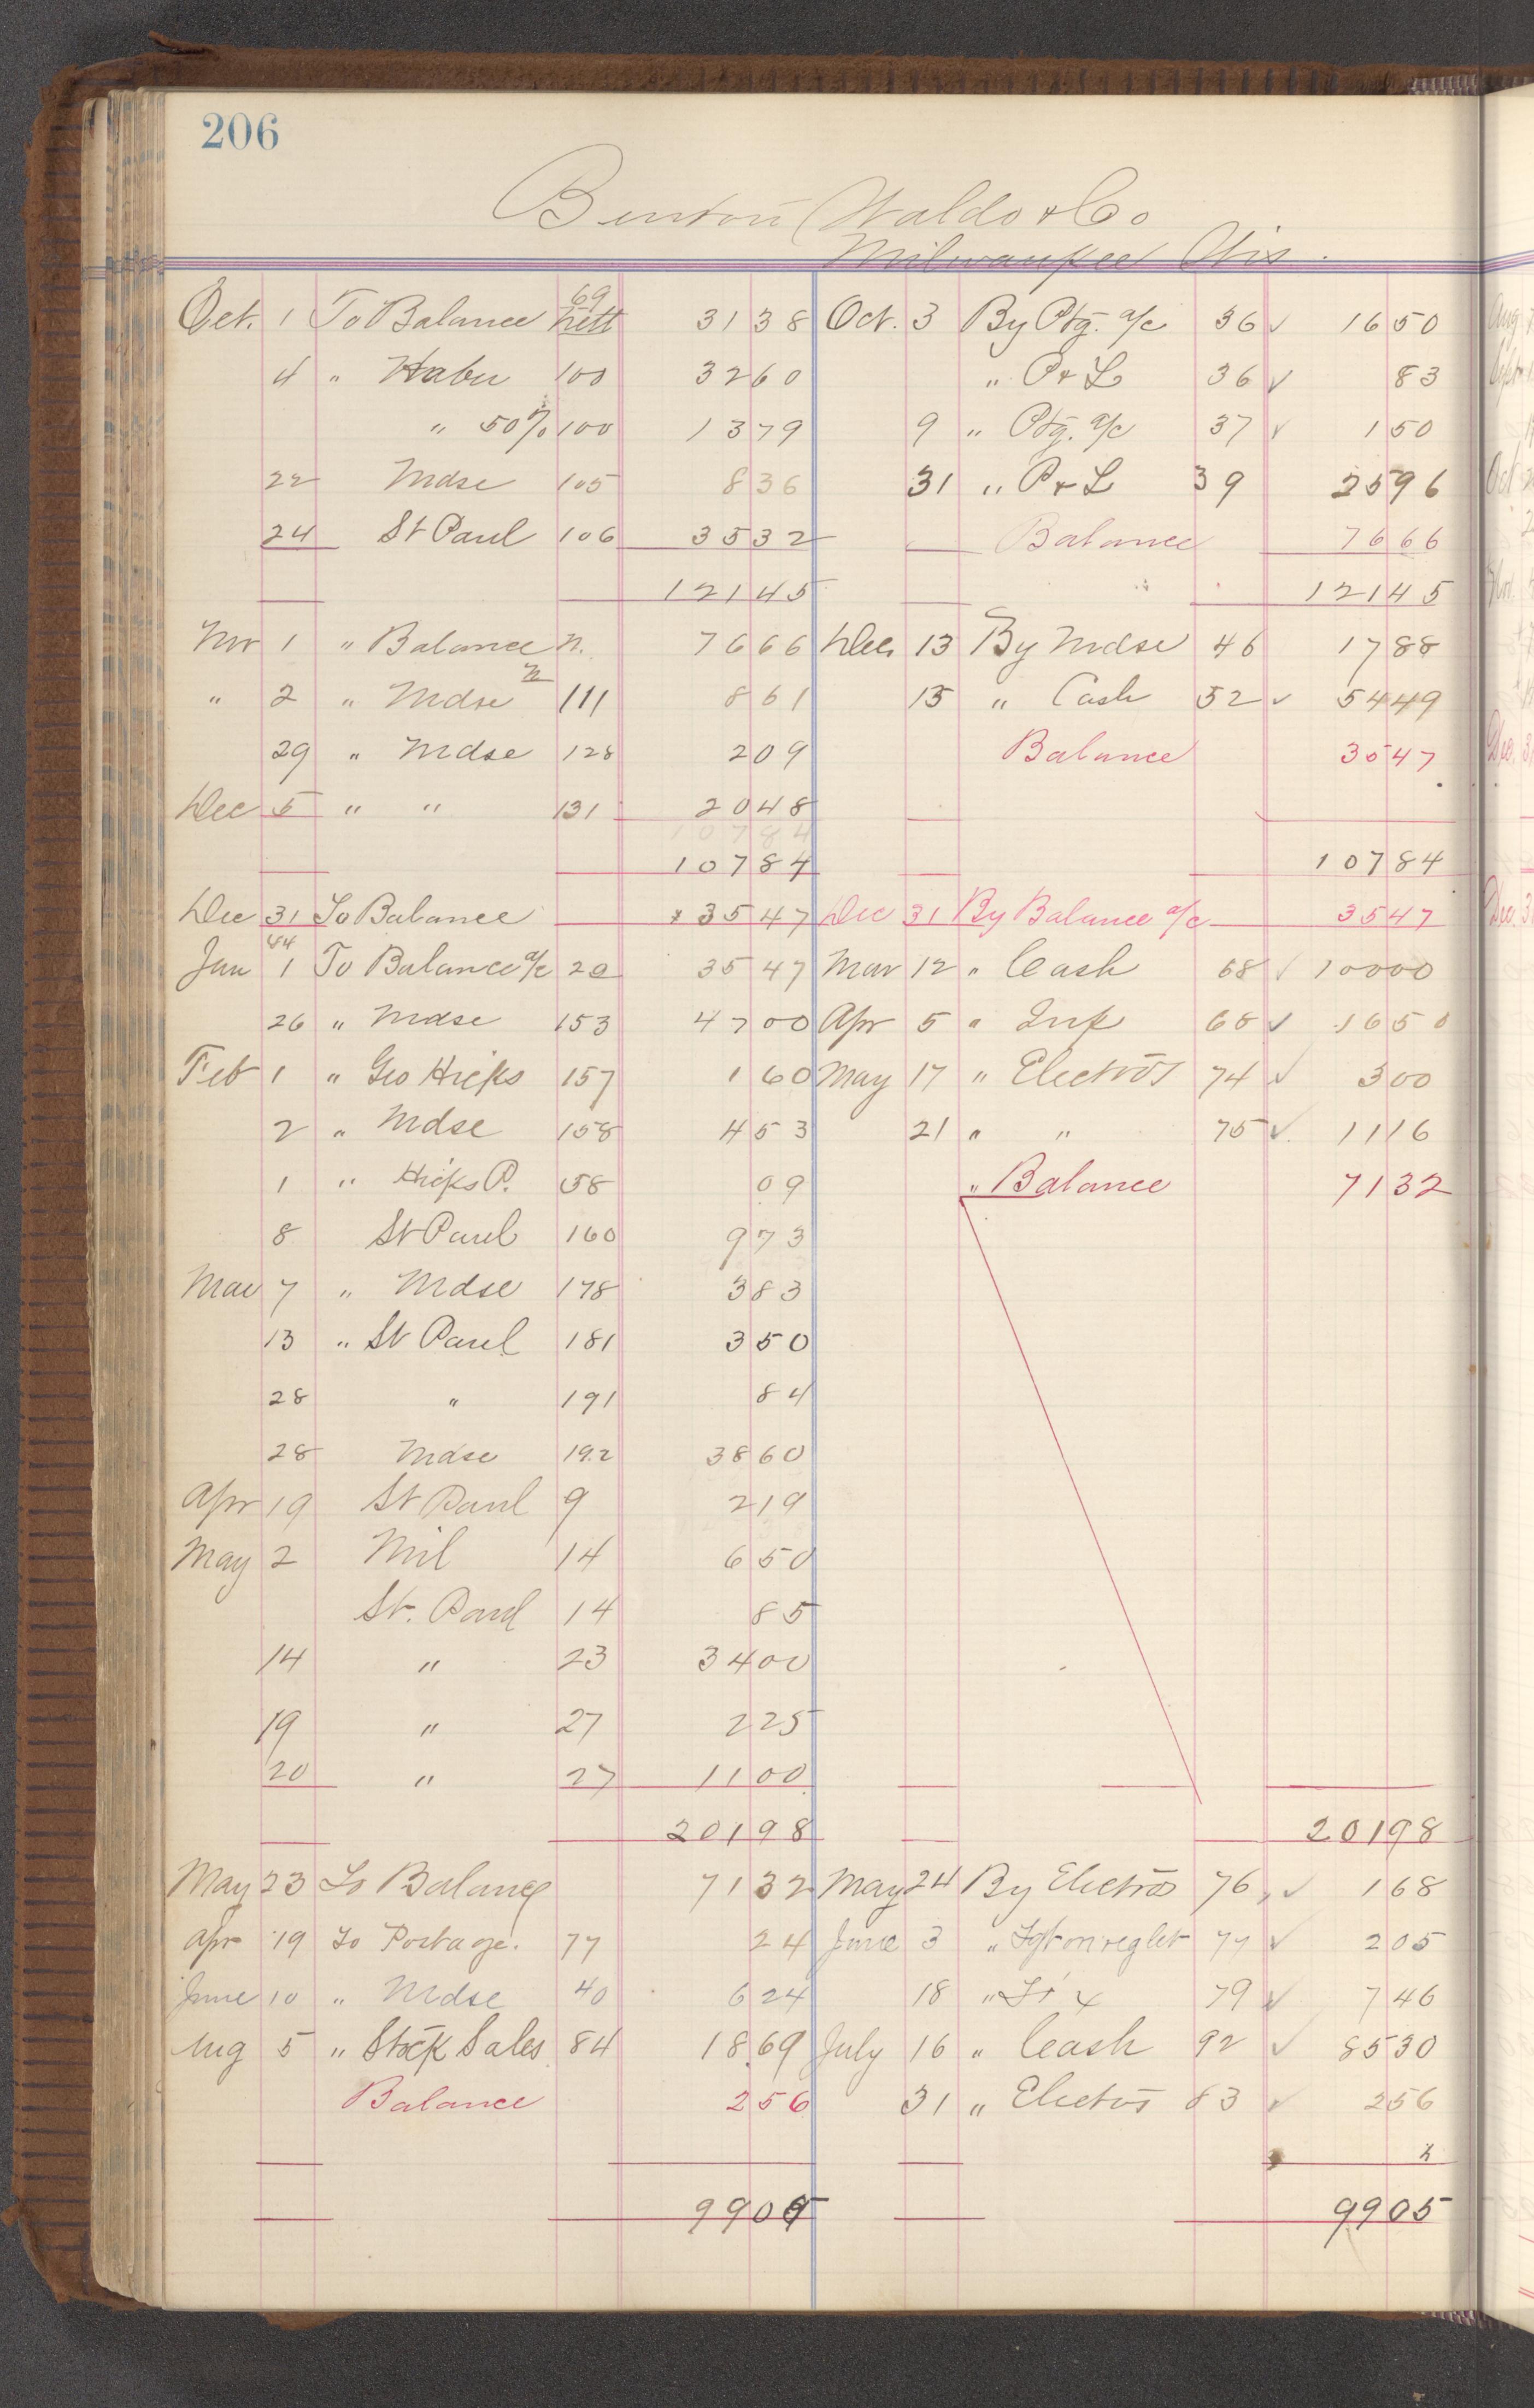 206
Benton Waldo & Co
Milwaukee Wis.
Oct. 1 To Balance 69 nett 31 38 Oct. 3 By Ptg. a/c 36 ✓ 16 50
4 " Haber 100 32 60 " P & L 36 ✓ 83
" 50% 100 13 79 9 " Ptg. a/c 37 ✓ 1 50
22 Mdse 105 8 36 31 " P & L 39 25 96
24 St Paul 106 35 32 Balance 76 66
121 45 121 45
Nov 1 " Balance n. 76 66 Dec. 13 By Mdse 46 17 88
" 2 " Mdse 111 8 61 15 " Cash 52 ✓ 54 49
29 " Mdse 128 2 09 Balance 35 47
Dec 5 " " 131 20 48
107 84
107 84 107 84
Dec 31 To Balance 35 47 Dec 31 By Balance a/c 35 47
84
Jan 1 To Balance a/c 20 35 47 Mar 12 " Cash 68 ✓ 100 00
26 " Mdse 153 47 00 Apr 5 " Ink 68 ✓ 16 50
Feb 1 " Geo Hicks 157 1 60 May 17 " Electros 74 ✓ 3 00
2 " Mdse 158 4 53 21 " " 75 ✓ 11 16
1 " Hicks P. 58 09 " Balance 71 32
8 St Paul 160 9 73
Mar 7 " Mdse 178 3 83
13 " St Paul 181 3 50
28 " 191 84
28 Mdse 192 38 60
Apr 19 St Paul 9 2 19
May 2 Mil 14 6 50
St. Paul 14 85
14 " 23 34 00
19 " 27 2 25
20 " 27 11 00
201 98 201 98
May 23 To Balance 71 32 May 24 By Electros 76 ✓ 1 68
Apr 19 To Postage. 77 24 June 3 " on reglet 77 ✓ 2 05
June 10 " Mdse 40 6 24 18 " 79 ✓ 7 46
Aug 5 " Stock Sales 84 18 69 July 16 " Cash 92 ✓ 85 30
Balance 2 56 31 " Electros 83 ✓ 2 56
99 05 99 05